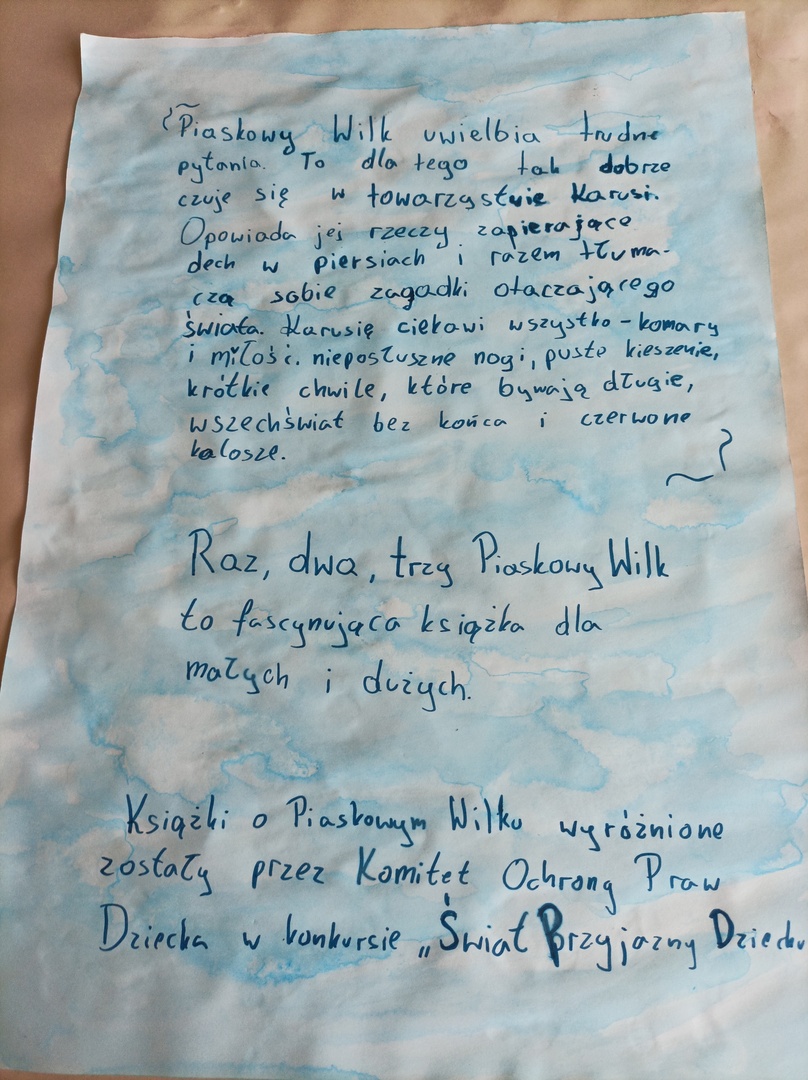 Piaskowy Wilk uwielbia trudne
pytania. To dla tego tak dobrze
czuje się w towarzystwie Karusi.
Opowiada jej rzeczy zapierające
dech w piersiach i razem tłuma-
czą sobie zagadki otaczającego
świata. Karusię ciekawi wszystko - komary
i miłość. nieposłuszne nogi, puste kieszenie,
krótkie chwile, które bywają długie,
wszechświat bez końca i czerwone
kalosze.
Raz, dwa, trzy Piaskowy Wilk
to fascynująca książka dla
małych i dużych.
Książki o Piaskowym Wilku wyróżnione
zostały przez Komitet Ochrony Praw
Dziecka w konkursie „Świat Przyjazny Dziecku